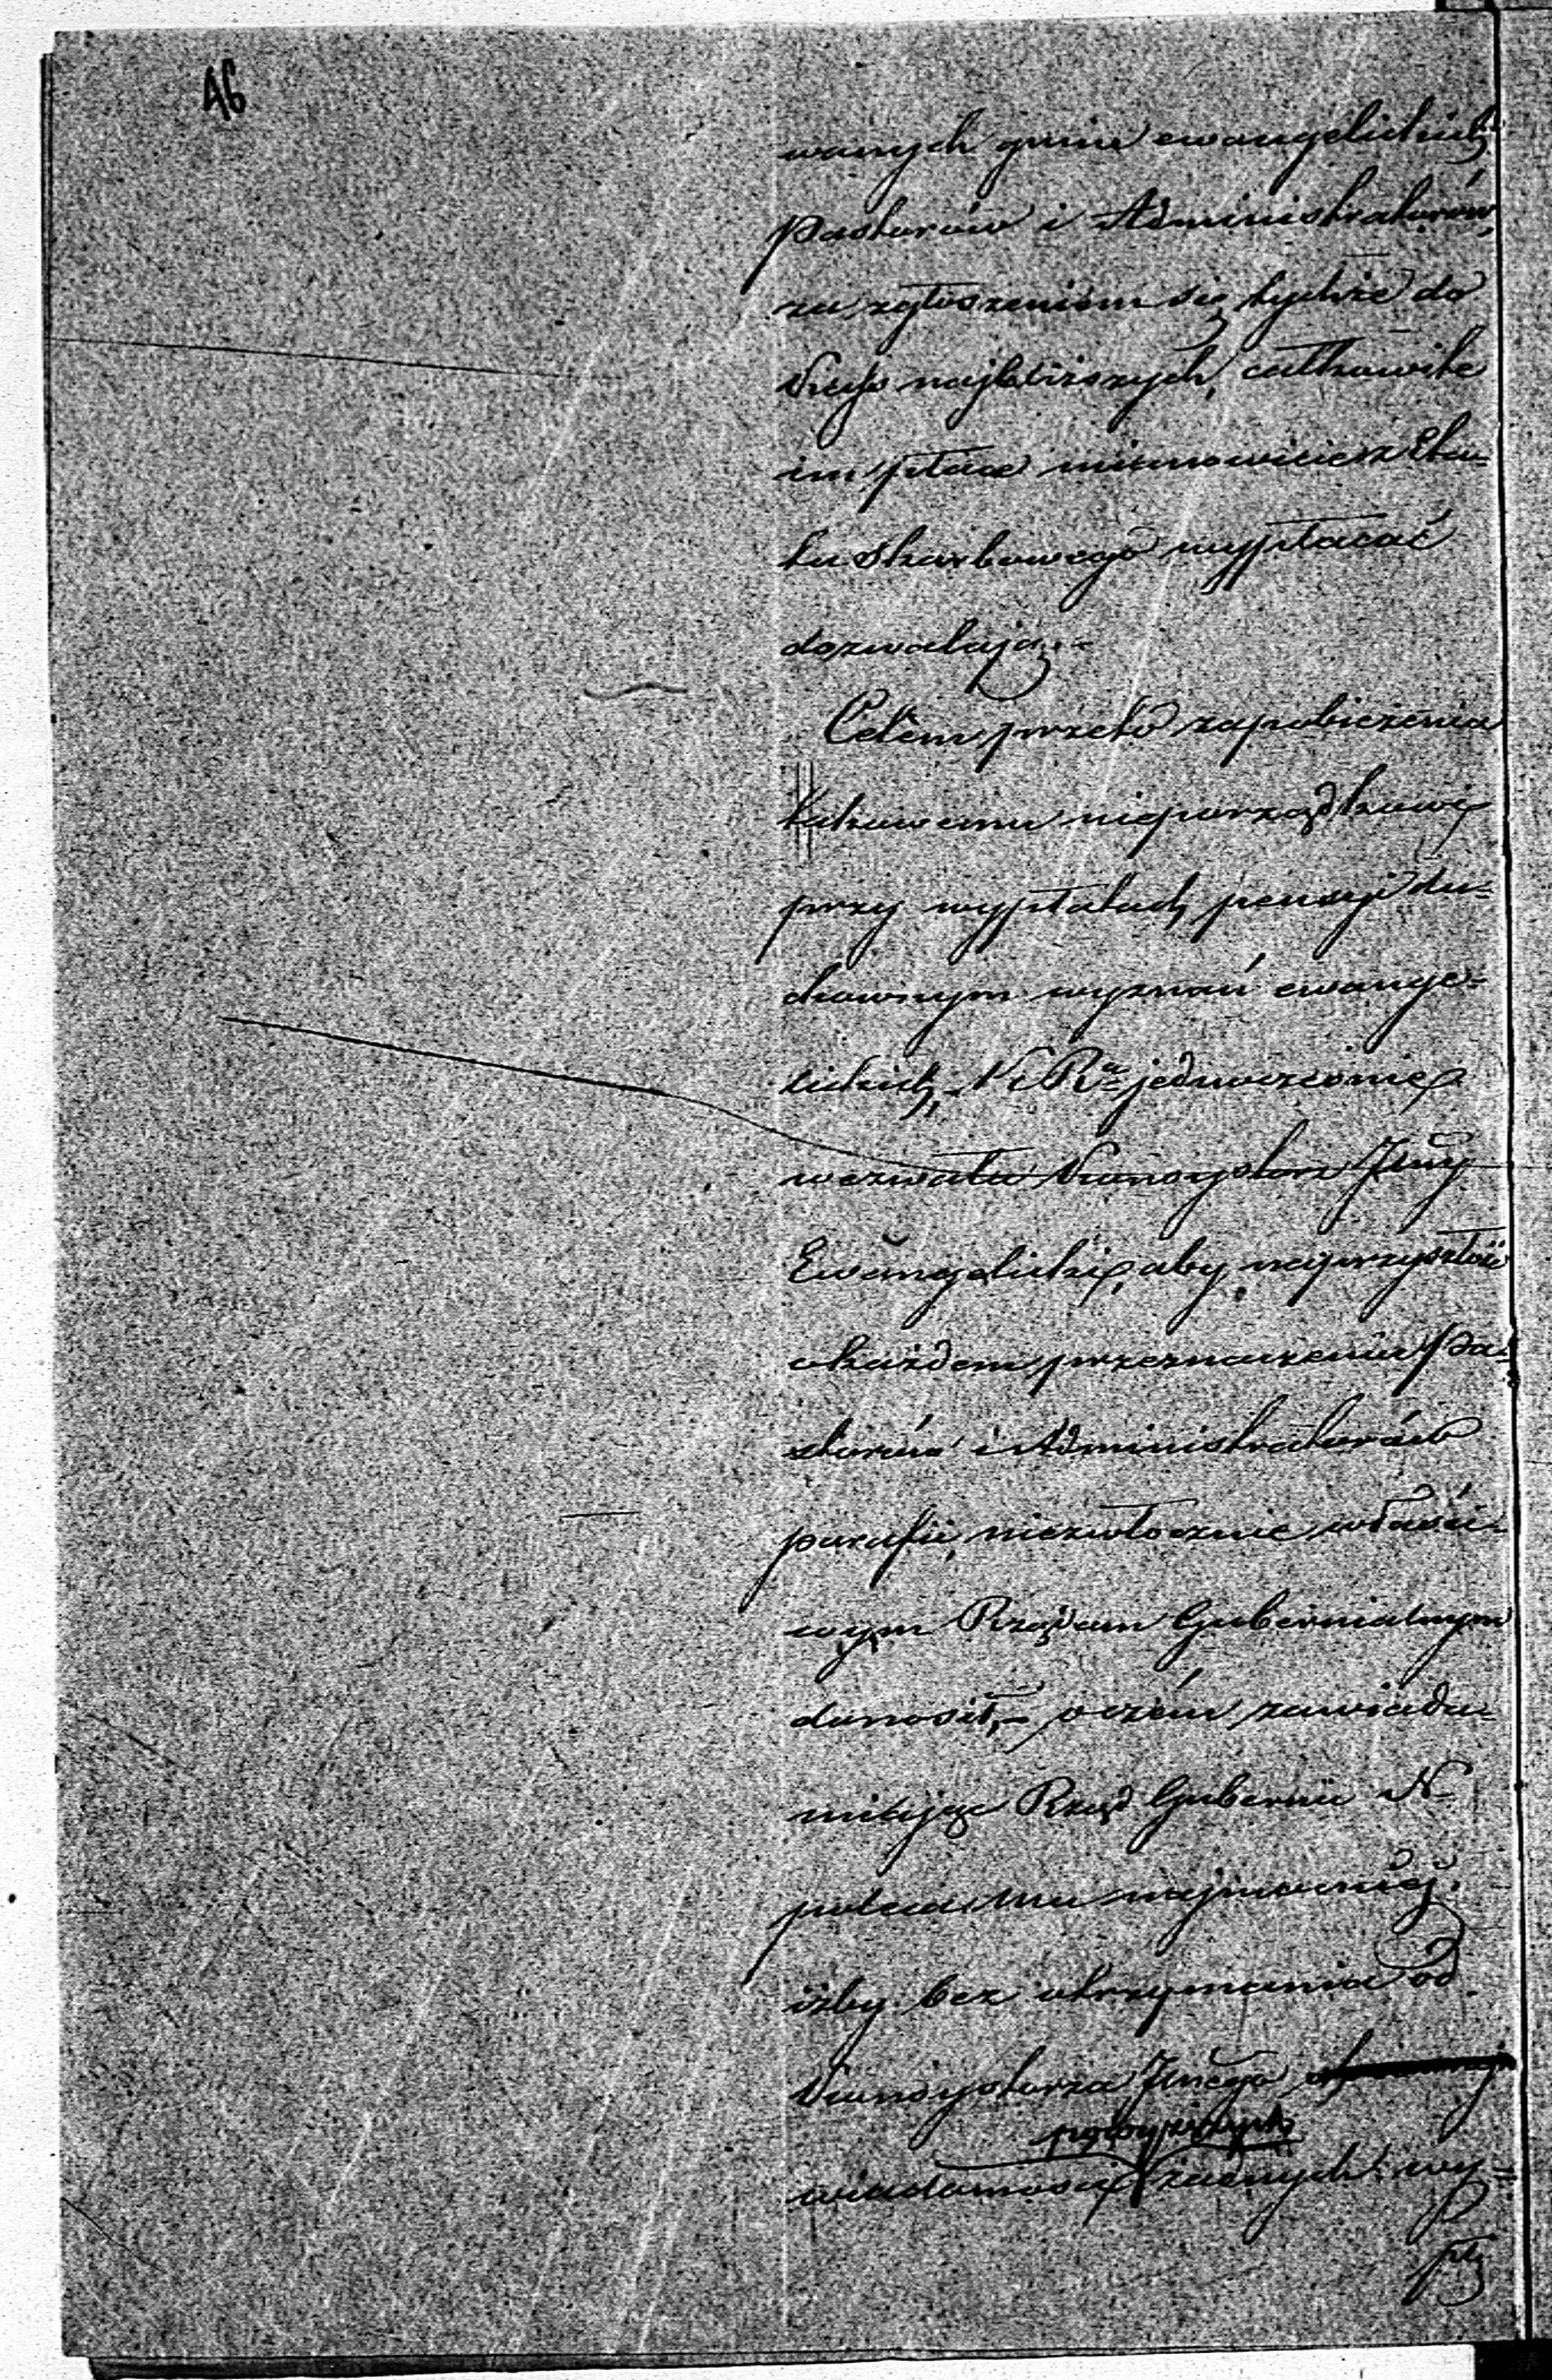 46
wanych gmin ewangelickich
Pastorów i Administratorów,
za zgłoszeniem się tychże do
Kass najbliższych, całkowite
im płace mianowicie z Eta-
tu Skarbowego wypłacać
dozwalają.-
Celem przeto zapobieżenia
takowemu nieporządkowi
przy wypłatach pensyi du-
chownym wyznań ewange-
lickich, - K R jednocześnie
wezwała Konsystorz Jlny
Ewangelicki, aby na przyszłość
o każdem przeznaczeniu Pa-
storów i Administratorów
parafii, niezwłocznie właści-
wym Rządom Gubernialnym
donosił, - o czém zawiada-
miając Rząd Gubernii N
poleca mu najmocniej.
iżby bez otrzymania od
Konsystorza Jlnego
powyższych
wiadomości żadnych wy-
pły